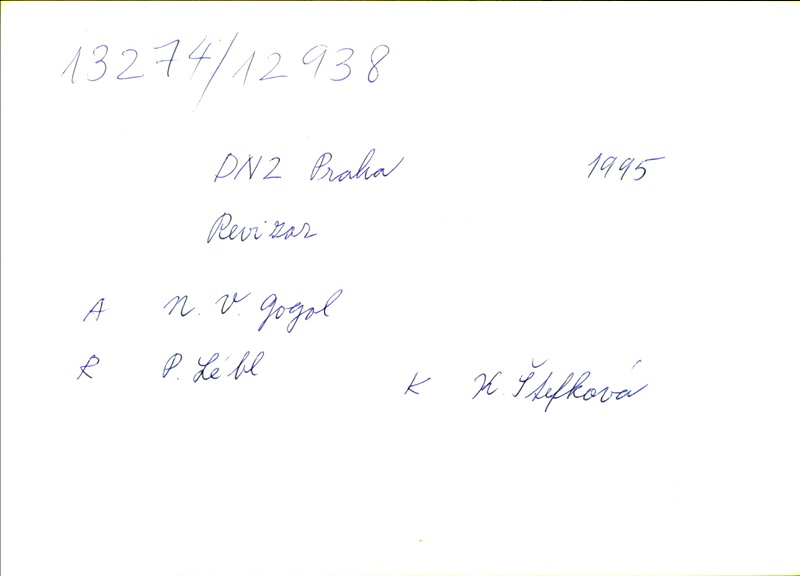 13274/12938
DNZ Praha 1995
Revizor
A N. V. Gogol
R P. Lébl
K K. Štefková